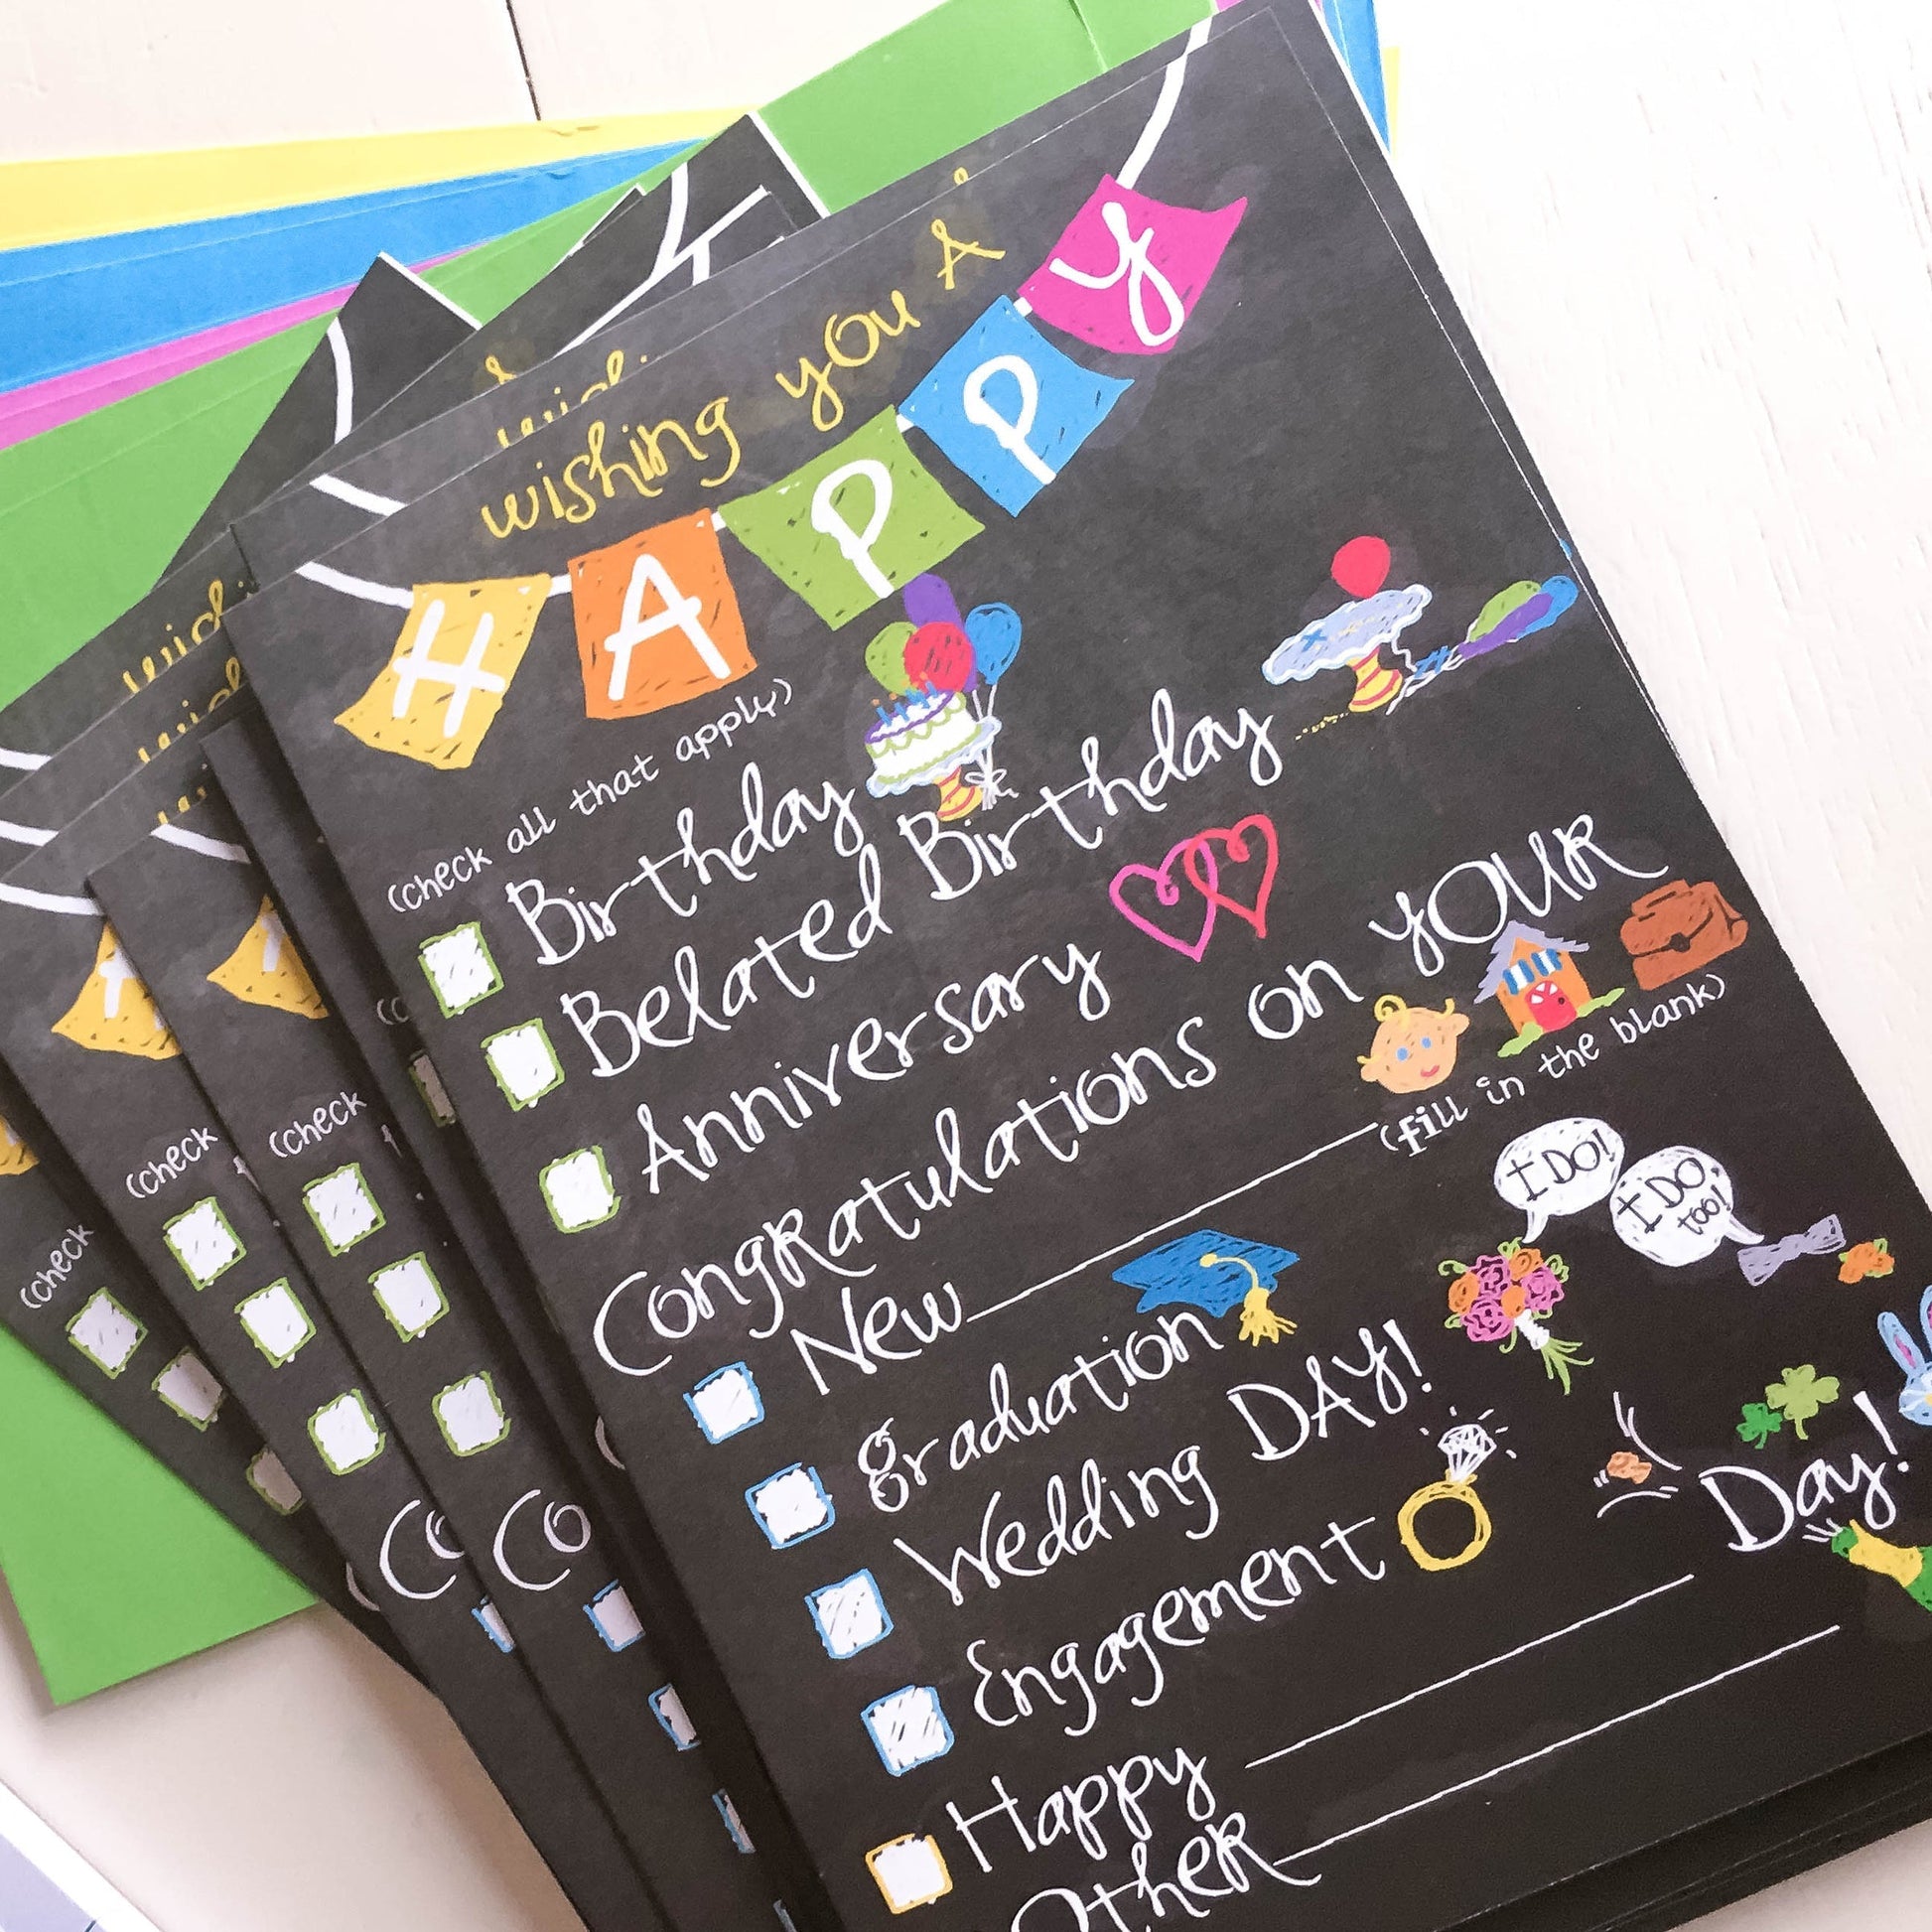 wishing you A
HAPPY
(check all that apply)
Birthday
Belated Birthday
Anniversary
Congratulations on YOUR
New (fill in the blank)
I DO!
I DO too!
graduation
Wedding DAY!
Engagement
Happy Day!
Other
wish
wish
wish
(check
(check
(check
Co
Co